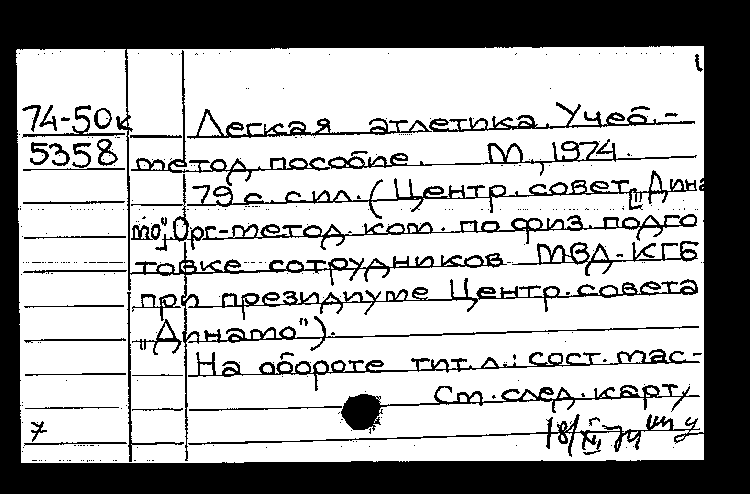 74-50к Легкая атлетика. Учеб.-
5358 метод. пособие. М., 1974.
79 с. с ил. (Центр. совет „Дина
мо", Орг-метод. ком. по физ. подго
товке сотрудников МВД-КГБ
при президиуме Центр. совета
„Динамо").
На обороте тит. л.: сост. мас-
См. след. карт.
7 18/XII-74